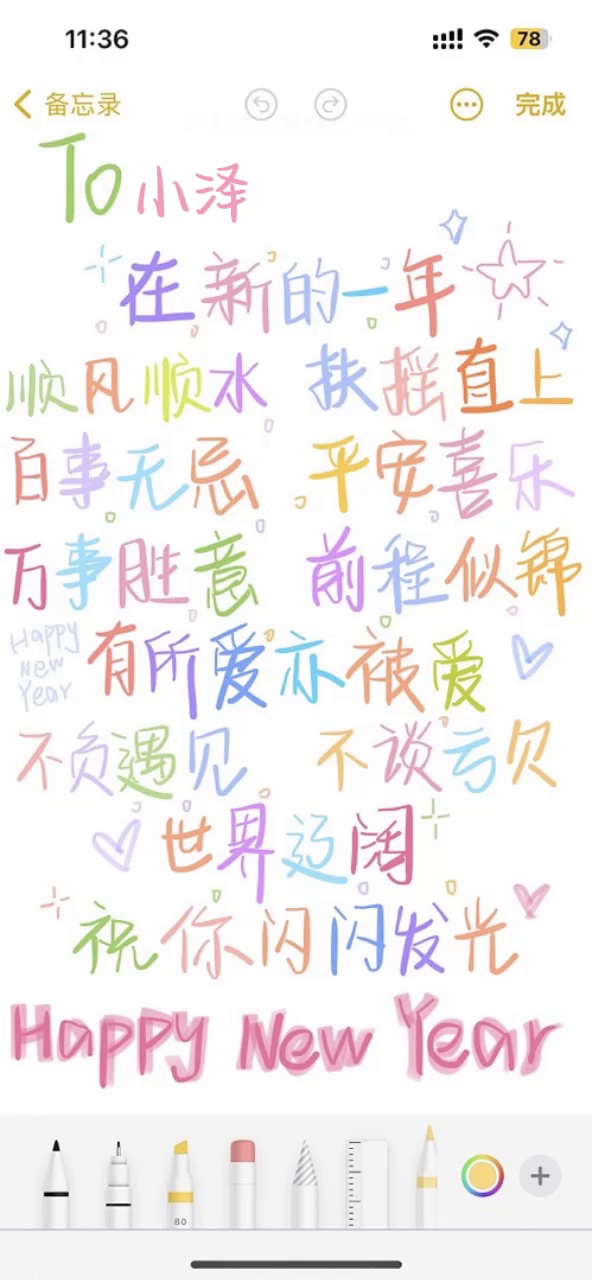 11:36
78
备忘录
完成
To 小泽
在新的一年
顺风顺水 扶摇直上
百事无忌 平安喜乐
万事胜意 前程似锦
Happy
New
Year
有所爱亦被爱
不负遇见 不谈亏欠
世界辽阔
祝你闪闪发光
Happy New Year
80